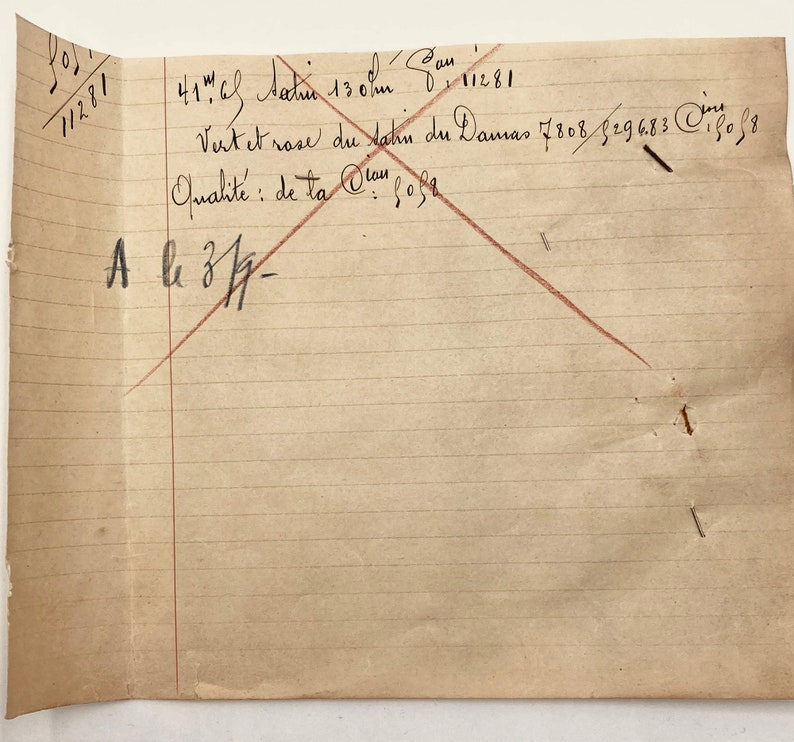 5058
11281
41m,65 Satin 130c/m Pon. 11281
Vert et rose du satin du Damas 7808/5296.83 Cion: 5058
Qualité: de la Cion: 5058
A le 3/9-